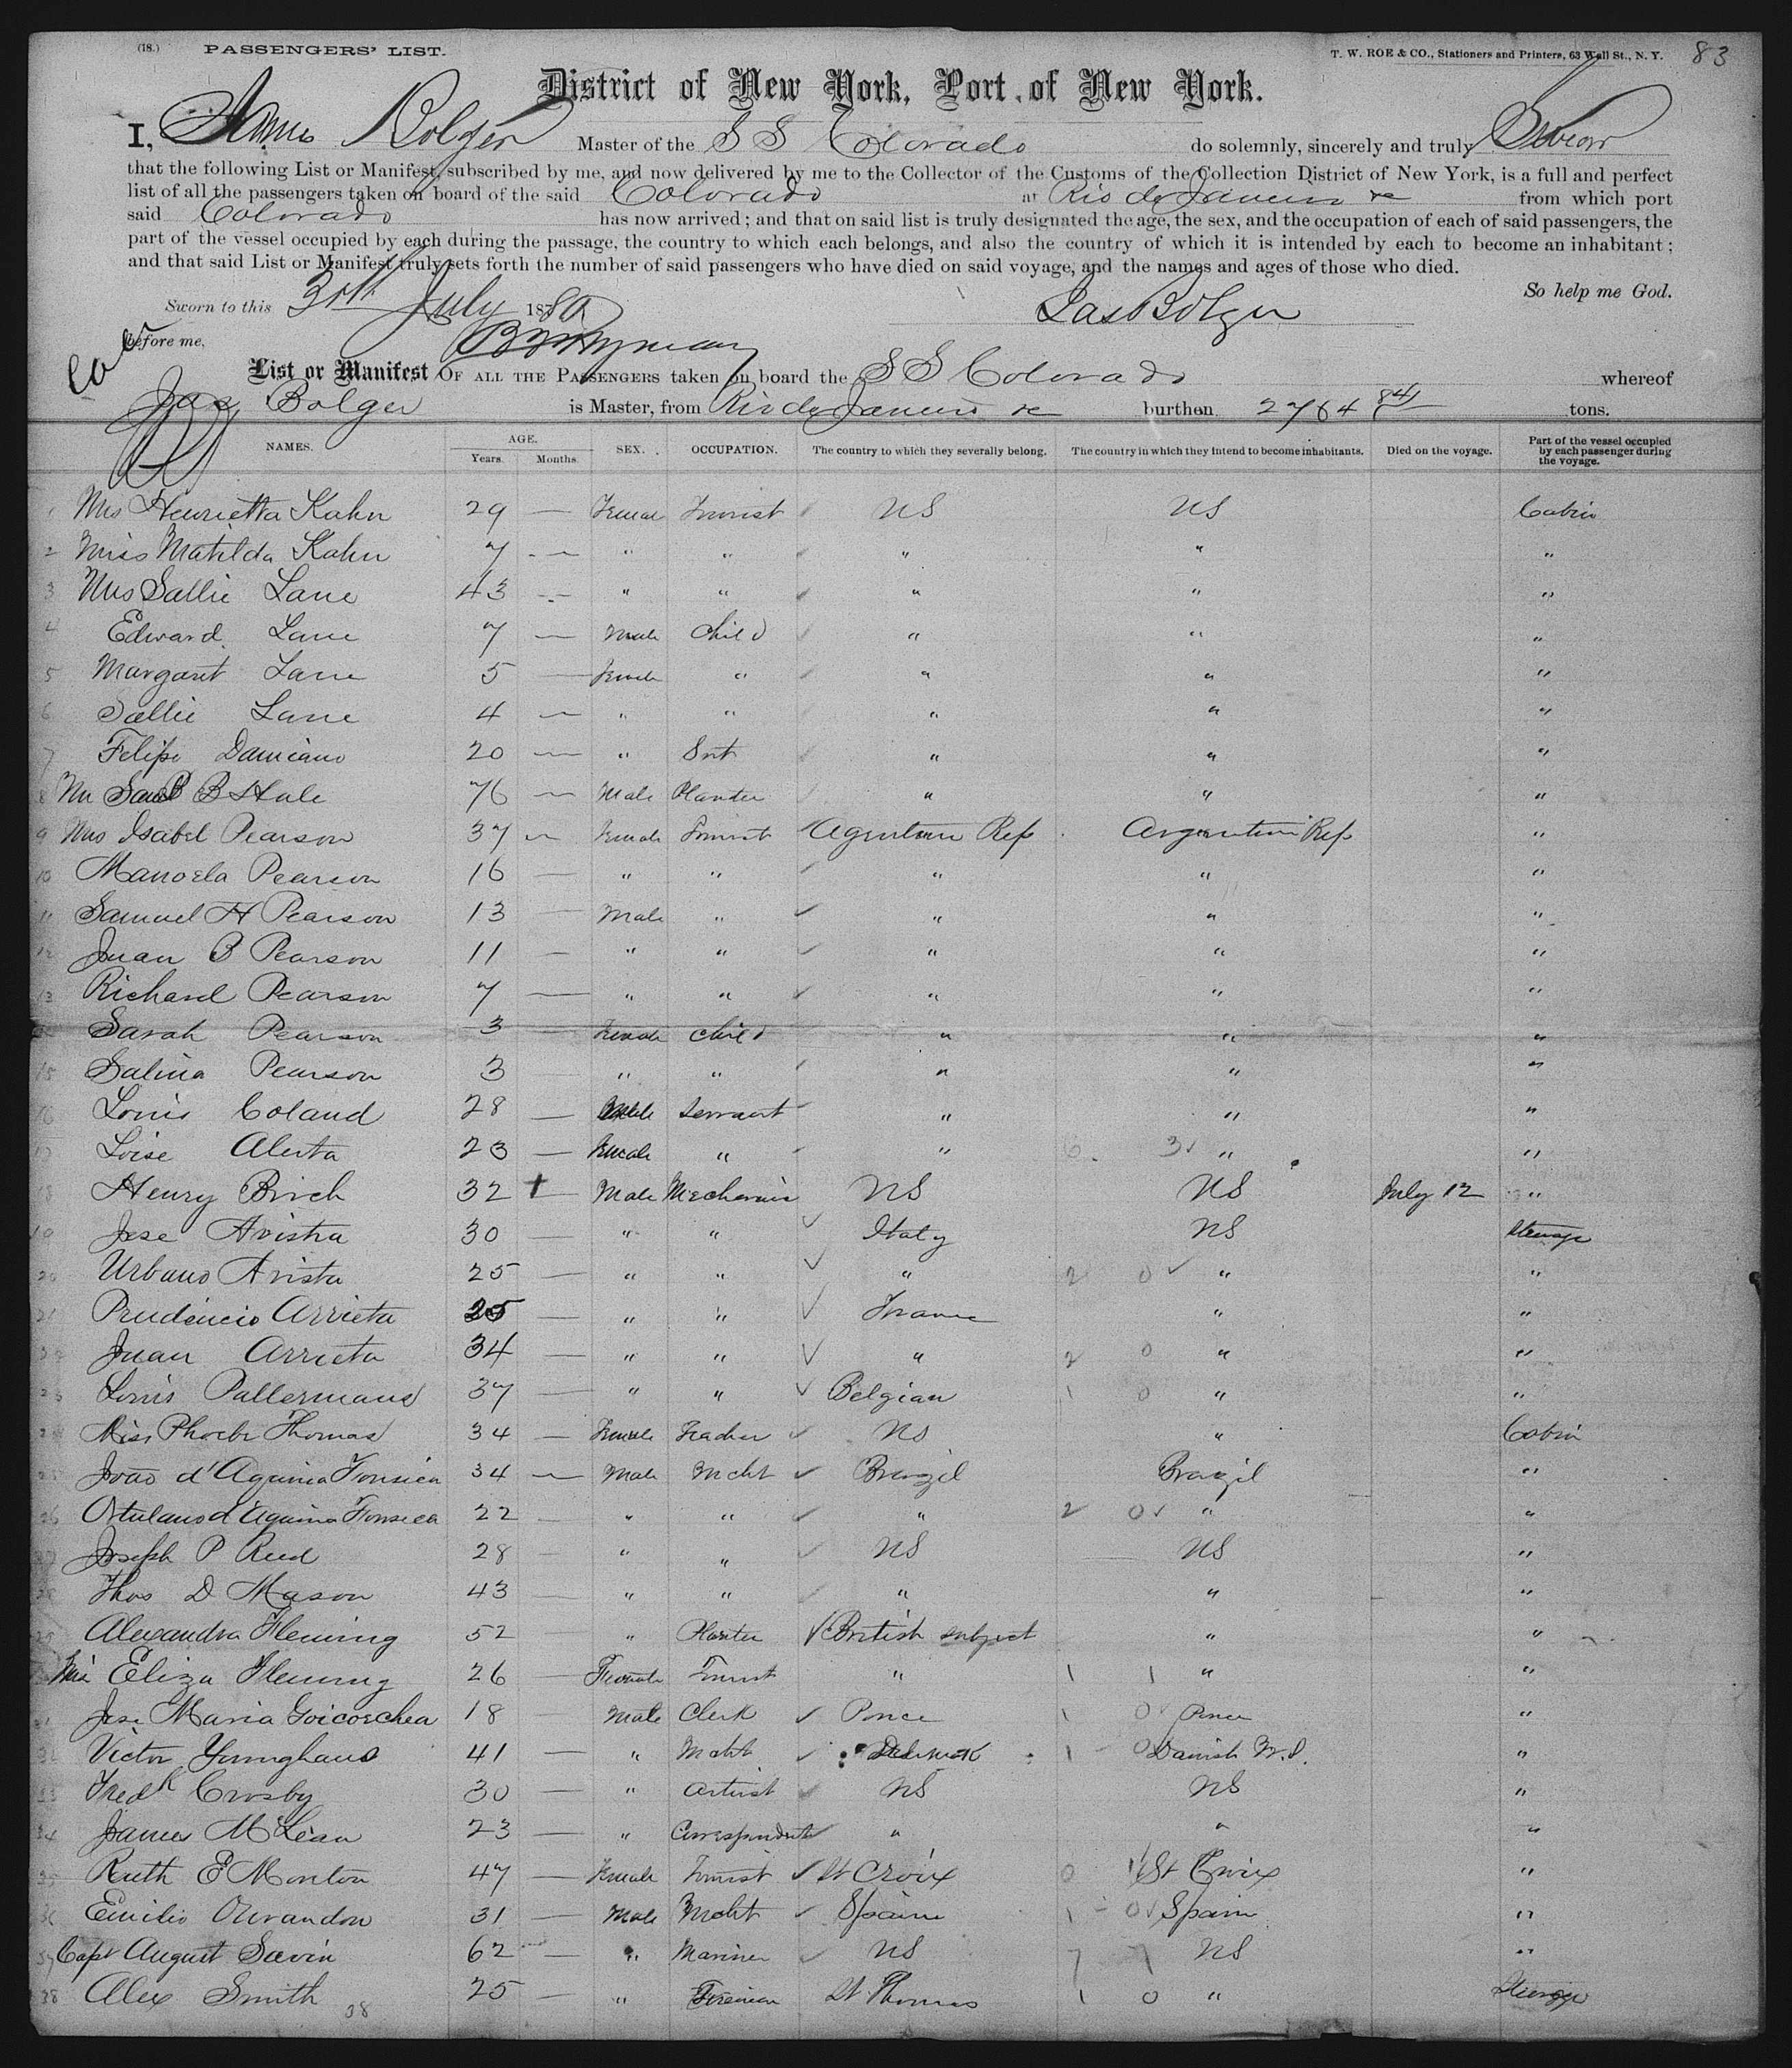 (18.) PASSENGERS' LIST. T. W. ROE & CO., Stationers and Printers, 63 Wall St., N. Y. 83
District of New York, Port of New York.
I, James Bolger Master of the S S Colorado do solemnly, sincerely and truly Swear
that the following List or Manifest, subscribed by me, and now delivered by me to the Collector of the Customs of the Collection District of New York, is a full and perfect
list of all the passengers taken on board of the said Colorado at Rio de Janeiro &c from which port
said Colorado has now arrived; and that on said list is truly designated the age, the sex, and the occupation of each of said passengers, the
part of the vessel occupied by each during the passage, the country to which each belongs, and also the country of which it is intended by each to become an inhabitant;
and that said List or Manifest truly sets forth the number of said passengers who have died on said voyage, and the names and ages of those who died.
So help me God.
Sworn to this 30th July 1880 Jas Bolger
before me,
List or Manifest OF ALL THE PASSENGERS taken on board the S S Colorado whereof
Jas Bolger is Master, from Rio de Janeiro &c burthen 2764 84/ tons.
NAMES. AGE. Years. Months. SEX. OCCUPATION. The country to which they severally belong. The country in which they intend to become inhabitants. Died on the voyage. Part of the vessel occupied by each passenger during the voyage.
1 Mrs Henrietta Kahn 29 — Female Tourist US US Cabin
2 Miss Matilda Kahn 7 — " " " " "
3 Mrs Sallie Lane 43 — " " " " "
4 Edward Lane 7 — Male Child " " "
5 Margaret Lane 5 — Female " " " "
6 Sallie Lane 4 — " " " " "
7 Felipe Damiano 20 — " Svt " " "
8 Mr B Hale 76 — Male Planter " " "
9 Mrs Isabel Pearson 37 — Female Tourist Agentine Rep Argentine Rep "
10 Manoela Pearson 16 — " " " " "
11 Samuel H Pearson 13 — Male " " " "
12 Juan B Pearson 11 — " " " " "
13 Richard Pearson 7 — " " " " "
Sarah Pearson 3 — Female Child " " "
15 Salina Pearson 3 " " " " "
16 Louis Coland 28 — Male Servant " " "
17 Loise Alerta 23 — Female " " 6 3 " "
18 Henry Birch 32 + — Male Mechanic US US July 12 "
19 Jose Arista 30 — " " Italy US Steerage
20 Urbano Arista 25 — " " " 2 0 " "
21 Prudencio Arrieta 25 — " " France " "
22 Juan Arrieta 34 — " " " 2 0 " "
23 Louis Pallermans 37 — " " Belgian 1 0 " "
24 Miss Phoebe Thomas 34 — Female Teacher US " Cabin
25 João d'Aquina Fonseca 34 — Male Mcht Brazil Brazil "
26 d'Aquina Fonseca 22 — " " " 2 0 " "
27 Joseph P Reed 28 — " " US US "
28 Thos D Mason 43 — " " " " "
29 Alexandra Fleming 52 — " Planter British subject " "
Miss Eliza Fleming 26 — Female Tourist " 1 1 " "
31 Jose Maria Goicoechea 18 Male Clerk Ponce 1 0 Ponce "
32 Victor Younghans 41 — " Mcht Denmark 1 0 Danish W.I. "
33 Fredk Crosby 30 — " Artist US US "
34 James McLean 23 — " Correspondent " " "
35 Ruth E Morton 47 — Female Tourist St Croix 0 1 St Croix "
36 Emilio 31 — Male Mcht Spain 1 0 Spain "
37 Capt August Savin 62 — " Mariner US 7 7 US "
38 Alex Smith 25 — " Fireman St Thomas 1 0 " Steerage
38